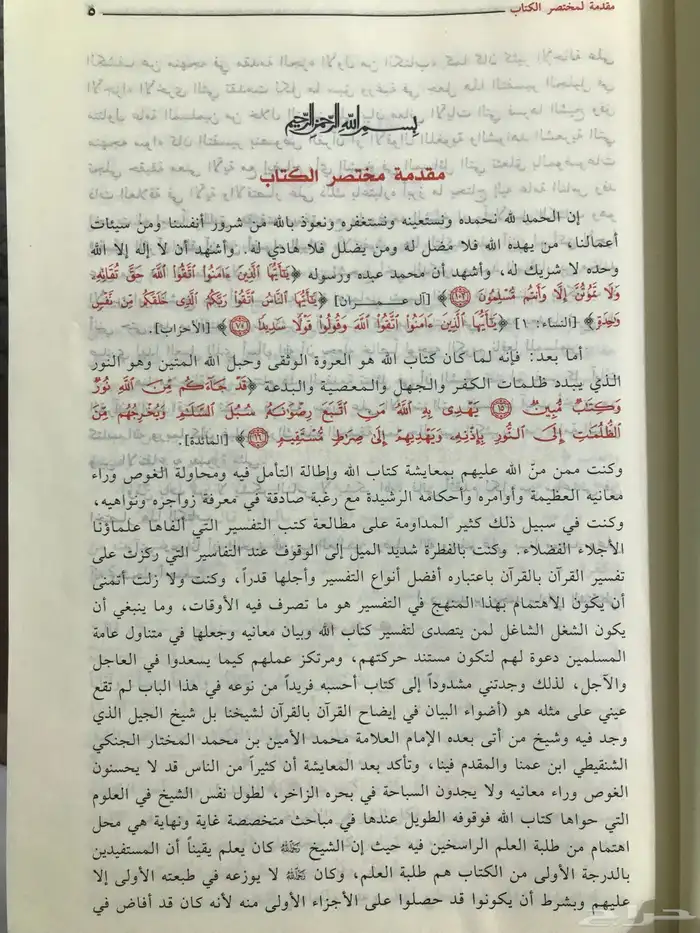 مقدمة لمختصر الكتاب ٥
بسم الله الرحمن الرحيم
مقدمة مختصر الكتاب
إن الحمد لله نحمده ونستعينه ونستغفره ونعوذ بالله من شرور أنفسنا ومن سيئات
أعمالنا، من يهده الله فلا مضل له ومن يضلل فلا هادي له. وأشهد أن لا إله إلا الله
وحده لا شريك له، وأشهد أن محمد عبده ورسوله ﴿يَٰٓأَيُّهَا ٱلَّذِينَ ءَامَنُوا۟ ٱتَّقُوا۟ ٱللَّهَ حَقَّ تُقَاتِهِۦ
وَلَا تَمُوتُنَّ إِلَّا وَأَنتُم مُّسْلِمُونَ ١٠٢﴾ [آل عمران] ﴿يَٰٓأَيُّهَا ٱلنَّاسُ ٱتَّقُوا۟ رَبَّكُمُ ٱلَّذِى خَلَقَكُم مِّن نَّفْسٍ
وَٰحِدَةٍ﴾ [النساء: ١] ﴿يَٰٓأَيُّهَا ٱلَّذِينَ ءَامَنُوا۟ ٱتَّقُوا۟ ٱللَّهَ وَقُولُوا۟ قَوْلًا سَدِيدًا ٧٠﴾ [الأحزاب].
أما بعد: فإنه لما كان كتاب الله هو العروة الوثقى وحبل الله المتين وهو النور
الذي يبدد ظلمات الكفر والجهل والمعصية والبدعة ﴿قَدْ جَآءَكُم مِّنَ ٱللَّهِ نُورٌ
وَكِتَٰبٌ مُّبِينٌ ١٥ يَهْدِى بِهِ ٱللَّهُ مَنِ ٱتَّبَعَ رِضْوَٰنَهُۥ سُبُلَ ٱلسَّلَٰمِ وَيُخْرِجُهُم مِّنَ
ٱلظُّلُمَٰتِ إِلَى ٱلنُّورِ بِإِذْنِهِۦ وَيَهْدِيهِمْ إِلَىٰ صِرَٰطٍ مُّسْتَقِيمٍ ١٦﴾ [المائدة].
وكنت ممن منّ الله عليهم بمعايشة كتاب الله وإطالة التأمل فيه ومحاولة الغوص وراء
معانيه العظيمة وأوامره وأحكامه الرشيدة مع رغبة صادقة في معرفة زواجره ونواهيه،
وكنت في سبيل ذلك كثير المداومة على مطالعة كتب التفسير التي ألفاها علماؤنا
الأجلاء الفضلاء. وكنت بالفطرة شديد الميل إلى الوقوف عند التفاسير التي ركزت على
تفسير القرآن بالقرآن باعتباره أفضل أنواع التفسير وأجلها قدراً، وكنت ولا زلت أتمنى
أن يكون الاهتمام بهذا المنهج في التفسير هو ما تصرف فيه الأوقات، وما ينبغي أن
يكون الشغل الشاغل لمن يتصدى لتفسير كتاب الله وبيان معانيه وجعلها في متناول عامة
المسلمين دعوة لهم لتكون مستند حركتهم، ومرتكز عملهم كيما يسعدوا في العاجل
والآجل، لذلك وجدتني مشدوداً إلى كتاب أحسبه فريداً من نوعه في هذا الباب لم تقع
عيني على مثله هو (أضواء البيان في إيضاح القرآن بالقرآن لشيخنا بل شيخ الجيل الذي
وجد فيه وشيخ من أتى بعده الإمام العلامة محمد الأمين بن محمد المختار الجنكي
الشنقيطي ابن عمنا والمقدم فينا، وتأكد بعد المعايشة أن كثيراً من الناس قد لا يحسنون
الغوص وراء معانيه ولا يجدون السباحة في بحره الزاخر، لطول نفس الشيخ في العلوم
التي حواها كتاب الله فوقوفه الطويل عندها في مباحث متخصصة غاية ونهاية هي محل
اهتمام من طلبة العلم الراسخين فيه حيث إن الشيخ رحمه الله كان يعلم يقيناً أن المستفيدين
بالدرجة الأولى من الكتاب هم طلبة العلم، وكان رحمه الله لا يوزعه في طبعته الأولى إلا
عليهم وبشرط أن يكونوا قد حصلوا على الأجزاء الأولى منه لأنه كان قد أفاض في
حراج